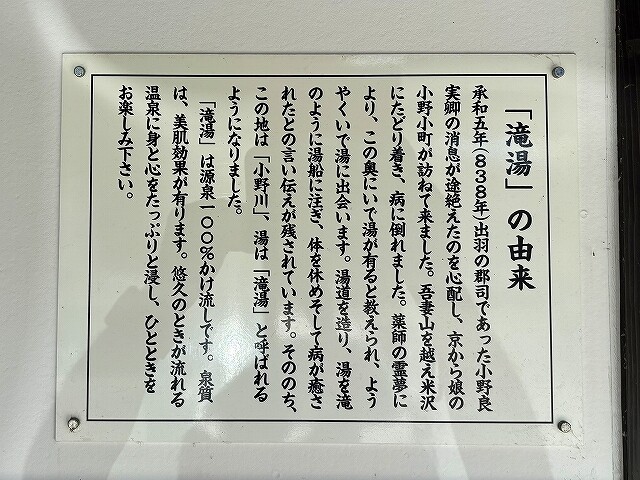 「滝湯」の由来
承和五年(838年)出羽の郡司であった小野良
実卿の消息が途絶えたのを心配し、京から娘の
小野小町が訪ねて来ました。吾妻山を越え米沢
にたどり着き、病に倒れました。薬師の霊夢に
より、この奥にいで湯が有ると教えられ、よう
やくいで湯に出会います。湯道を造り、湯を滝
のように湯船に注ぎ、体を休めそして病が癒さ
れたとの言い伝えが残されています。そののち、
この地は「小野川」、湯は「滝湯」と呼ばれる
ようになりました。
「滝湯」は源泉一〇〇%かけ流しです。泉質
は、美肌効果が有ります。悠久のときが流れる
温泉に身と心をたっぷりと浸し、ひとときを
お楽しみ下さい。